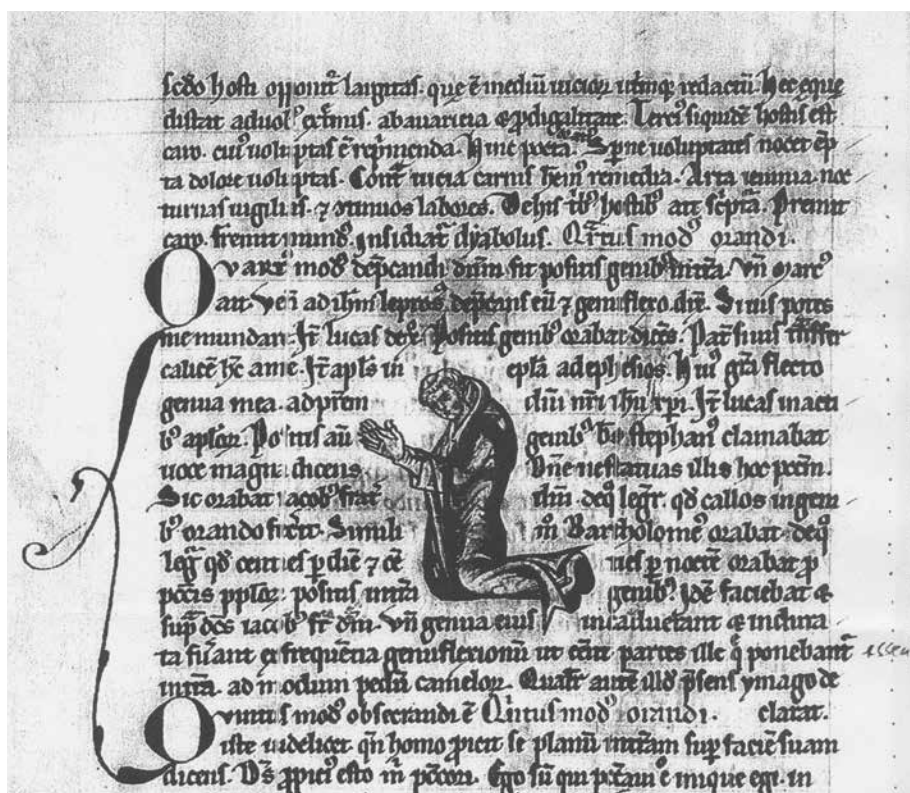 scđo hosti opponit̃ largitas. que ẽ mediũ uicioꝝ utrimqꝫ redactũ. Hec eque
distat a duobꝰ extͥmis. ab auaricia ⁊ ꝓdigalitate. Tercͥus siquidẽ hostis est
caro. cuiꝰ uoluptas ẽ rep̃menda. Hinc poeta. Sperne uoluptates nocet ẽp
ta dolore uoluptas. Contͣ uicia carnis hẽm remedia. Arta ieiunia. noc
turnas uigilias. ⁊ ↄtinuos labores. De hiis tͥbꝰ hostibꝰ ait sc̃pta. Premit
caro. fremit mundꝰ. insidiat̃ dyabolus. Qͣrtus modꝰ orandi.
QVARTꝰ modꝰ dep̃candi dñm fit positis genibꝰ in tr̃a. Vñ Marcꝰ
ait. Veñ ad ihm leprosꝰ dep̃cans eũ ⁊ genu flexo dix̃. Si uis potes
me mundare. Jt̃ lucas de xp̃o. Positis genibꝰ orabat dicẽs. Pat̃ si uis tͣnsfer
calicẽ hc̃ a me. Jt̃ apl̃s in epl̃a ad ephesios. Huiꝰ gr̃a flecto
genua mea. ad pr̃em dñi nr̃i ihu xp̃i. Jt̃ lucas in acti
bꝰ apl̃oꝝ. Positis aũ genibꝰ bs̃ stephanꝰ clamabat
uoce magna dicens Dñe ne statuas illis hoc pcc̃m.
Sic orabat iacobꝰ frat̃ dñi. de qͦ legit̃. qđ callos in geni
bꝰ orando fec̃it. Simili m̊ Bartholomeꝰ orabat. de qͦ
leg̃r qđ centies p diẽ ⁊ cẽ ties p noctẽ orabat p̱
pcc̃is ppl̃oꝝ. positis in tr̃a genibꝰ. Jdẽ faciebat ⁊
sup̃ dc̃s iacobꝰ fr̃ dñi. Vñ genua eius incaluerant ⁊ indura
ta fuãnt ex frequẽtia genuflexionũ ut cẽnt partes ille q̃ ponebant̃
in tr̃a. ad modum pedũ cameloꝝ. Qualit̃ autẽ illđ p̃sens ymago de
clarat.
QVintus modꝰ obsecrandi ẽ Qͥntus modꝰ orandi.
iste uidelicet qñ homo ꝓicit se planũ in tr̃am sup faciẽ suam
dicens. Ds̃ ꝓpiciꝰ esto m̃ pcc̃ori. Ego sũ qui pcc̃aui ⁊ inique egi. in